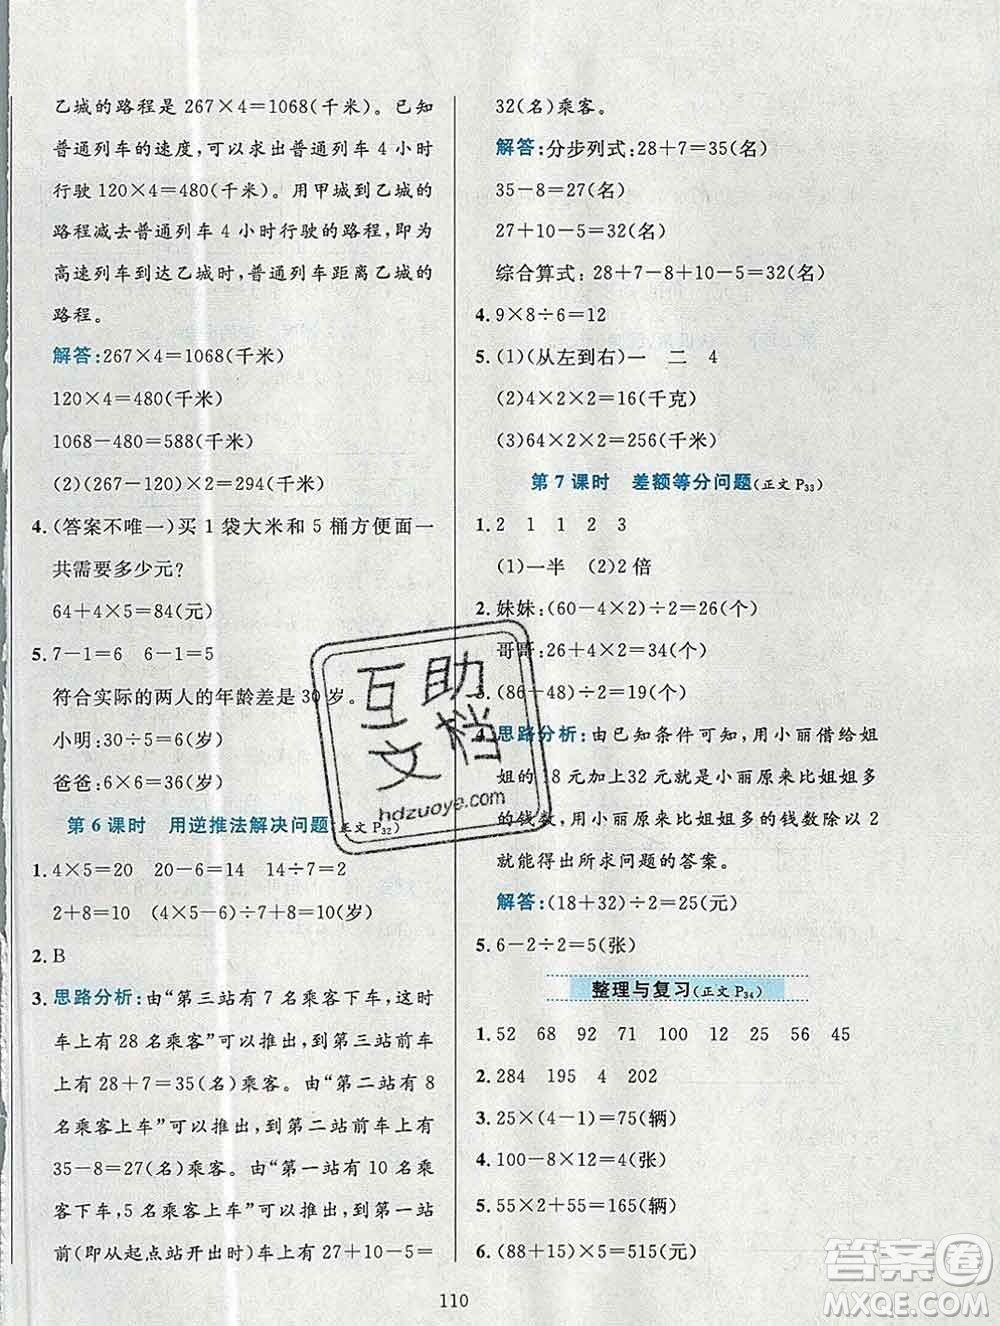 乙城的路程是 267×4=1068(千米)。已知
普通列车的速度,可以求出普通列车 4 小时
行驶 120×4=480(千米)。用甲城到乙城的
路程减去普通列车 4 小时行驶的路程,即为
高速列车到达乙城时,普通列车距离乙城的
路程。
解答:267×4=1068(千米)
120×4=480(千米)
1068-480=588(千米)
(2)(267-120)×2=294(千米)
4.(答案不唯一)买 1 袋大米和 5 桶方便面一
共需要多少元?
64+4×5=84(元)
5. 7-1=6 6-1=5
符合实际的两人的年龄差是 30 岁。
小明:30÷5=6(岁)
爸爸:6×6=36(岁)
第 6 课时 用逆推法解决问题(正文 P32)
1. 4×5=20 20-6=14 14÷7=2
2+8=10 (4×5-6)÷7+8=10
2. B
3. 思路分析:由“第三站有 7 名乘客下车,这时
车上有 28 名乘客”可以推出,到第三站前车
上有 28+7=35(名)乘客。由“第二站有 8
名乘客上车”可以推出,到第二站前车上有
35-8=27(名)乘客。由“第一站有 10 名乘
客下车,5 名乘客上车”可以推出,到第一站
前(即从起点站开出时)车上有 27+10-5=
32(名)乘客。
解答:分步列式:28+7=35(名)
35-8=27(名)
27+10-5=32(名)
综合算式:28+7-8+10-5=32(名)
4. 9×8÷6=12
5. (1)(从左到右)一 二 4
(2)4×2×2=16(千克)
(3)64×2×2=256(千米)
第 7 课时 差额等分问题(正文 P33)
1. 2 1 1 2 3
(1)一半 (2)2 倍
2. 妹妹:(60-4×2)÷2=26(个)
哥哥:26+4×2=34(个)
3. (86-48)÷2=19(名)
4. 思路分析:由已知条件可知,用小丽借给姐
姐的 18 元加上32 元就是小丽原来比姐姐多
的钱数,用小丽原来比姐姐多的钱数除以 2
就能得出所求问题的答案。
解答:(18+32)÷2=25(元)
5. 6-2÷2=5(张)
整理与复习(正文 P34)
1. 52 68 92 71 100 12 25 56 45
2. 284 195 4 202
3. 25×(4-1)=75(辆)
4. 100-8×12=4(张)
5. 55×2+55=165(辆)
6. (88+15)×5=515(元)
110
互助
文档
hdzuoye.com
答案圈
MXQE.COM